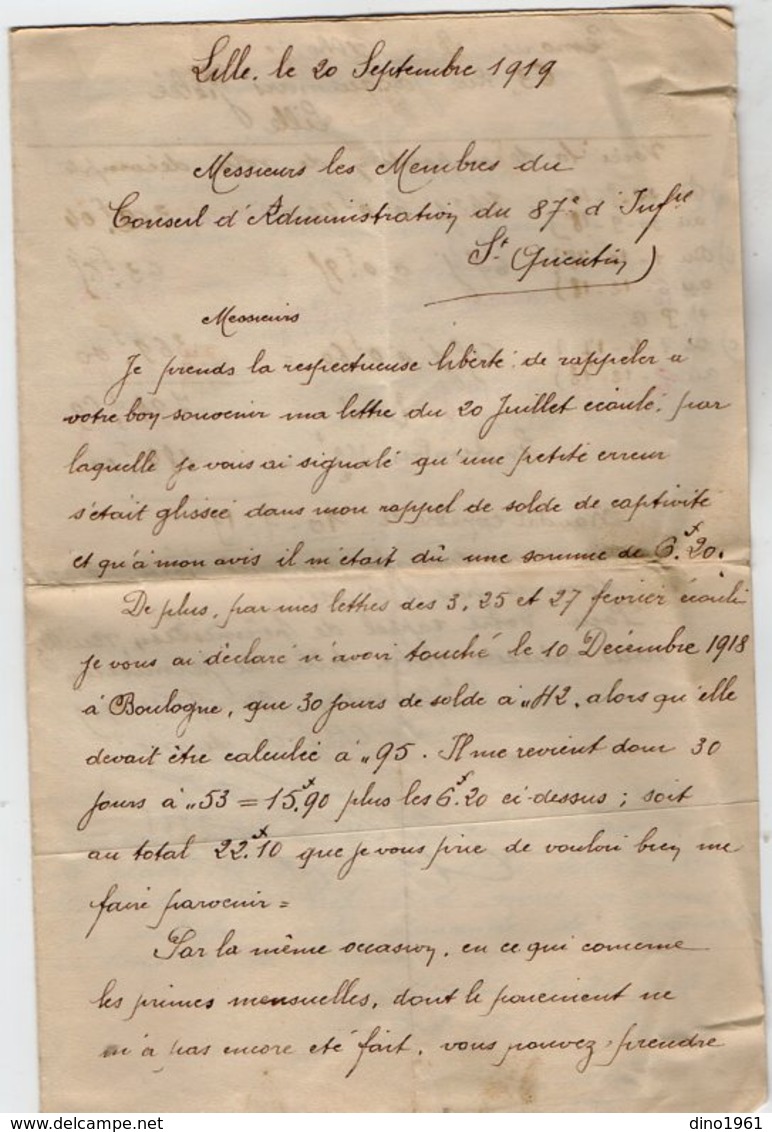 Lille. le 20 Septembre 1919
Messieurs les Membres du
Conseil d'Administration du 87e d'Infrie
St. Quentin
Messieurs
Je prends la respectueuse liberté de rappeler à
votre bon souvenir ma lettre du 20 Juillet écoulé, par
laquelle je vous ai signalé qu'une petite erreur
s'était glissée dans mon rappel de solde de captivité
et qu'à mon avis il m'était dû une somme de 6.f20.
De plus, par mes lettres des 3, 25 et 27 février écoulé
je vous ai déclaré n'avoir touché le 10 Décembre 1918
à Boulogne, que 30 jours de solde à „42, alors qu'elle
devait être calculée à „95. Il me revient donc 30
jours à „53 = 15.f90 plus les 6.f20 ci-dessus ; soit
au total 22.f10 que je vous prie de vouloir bien me
faire parvenir =
Par la même occasion, en ce qui concerne
les primes mensuelles, dont le paiement ne
m'a pas encore été fait, vous pouvez prendre
dino1961